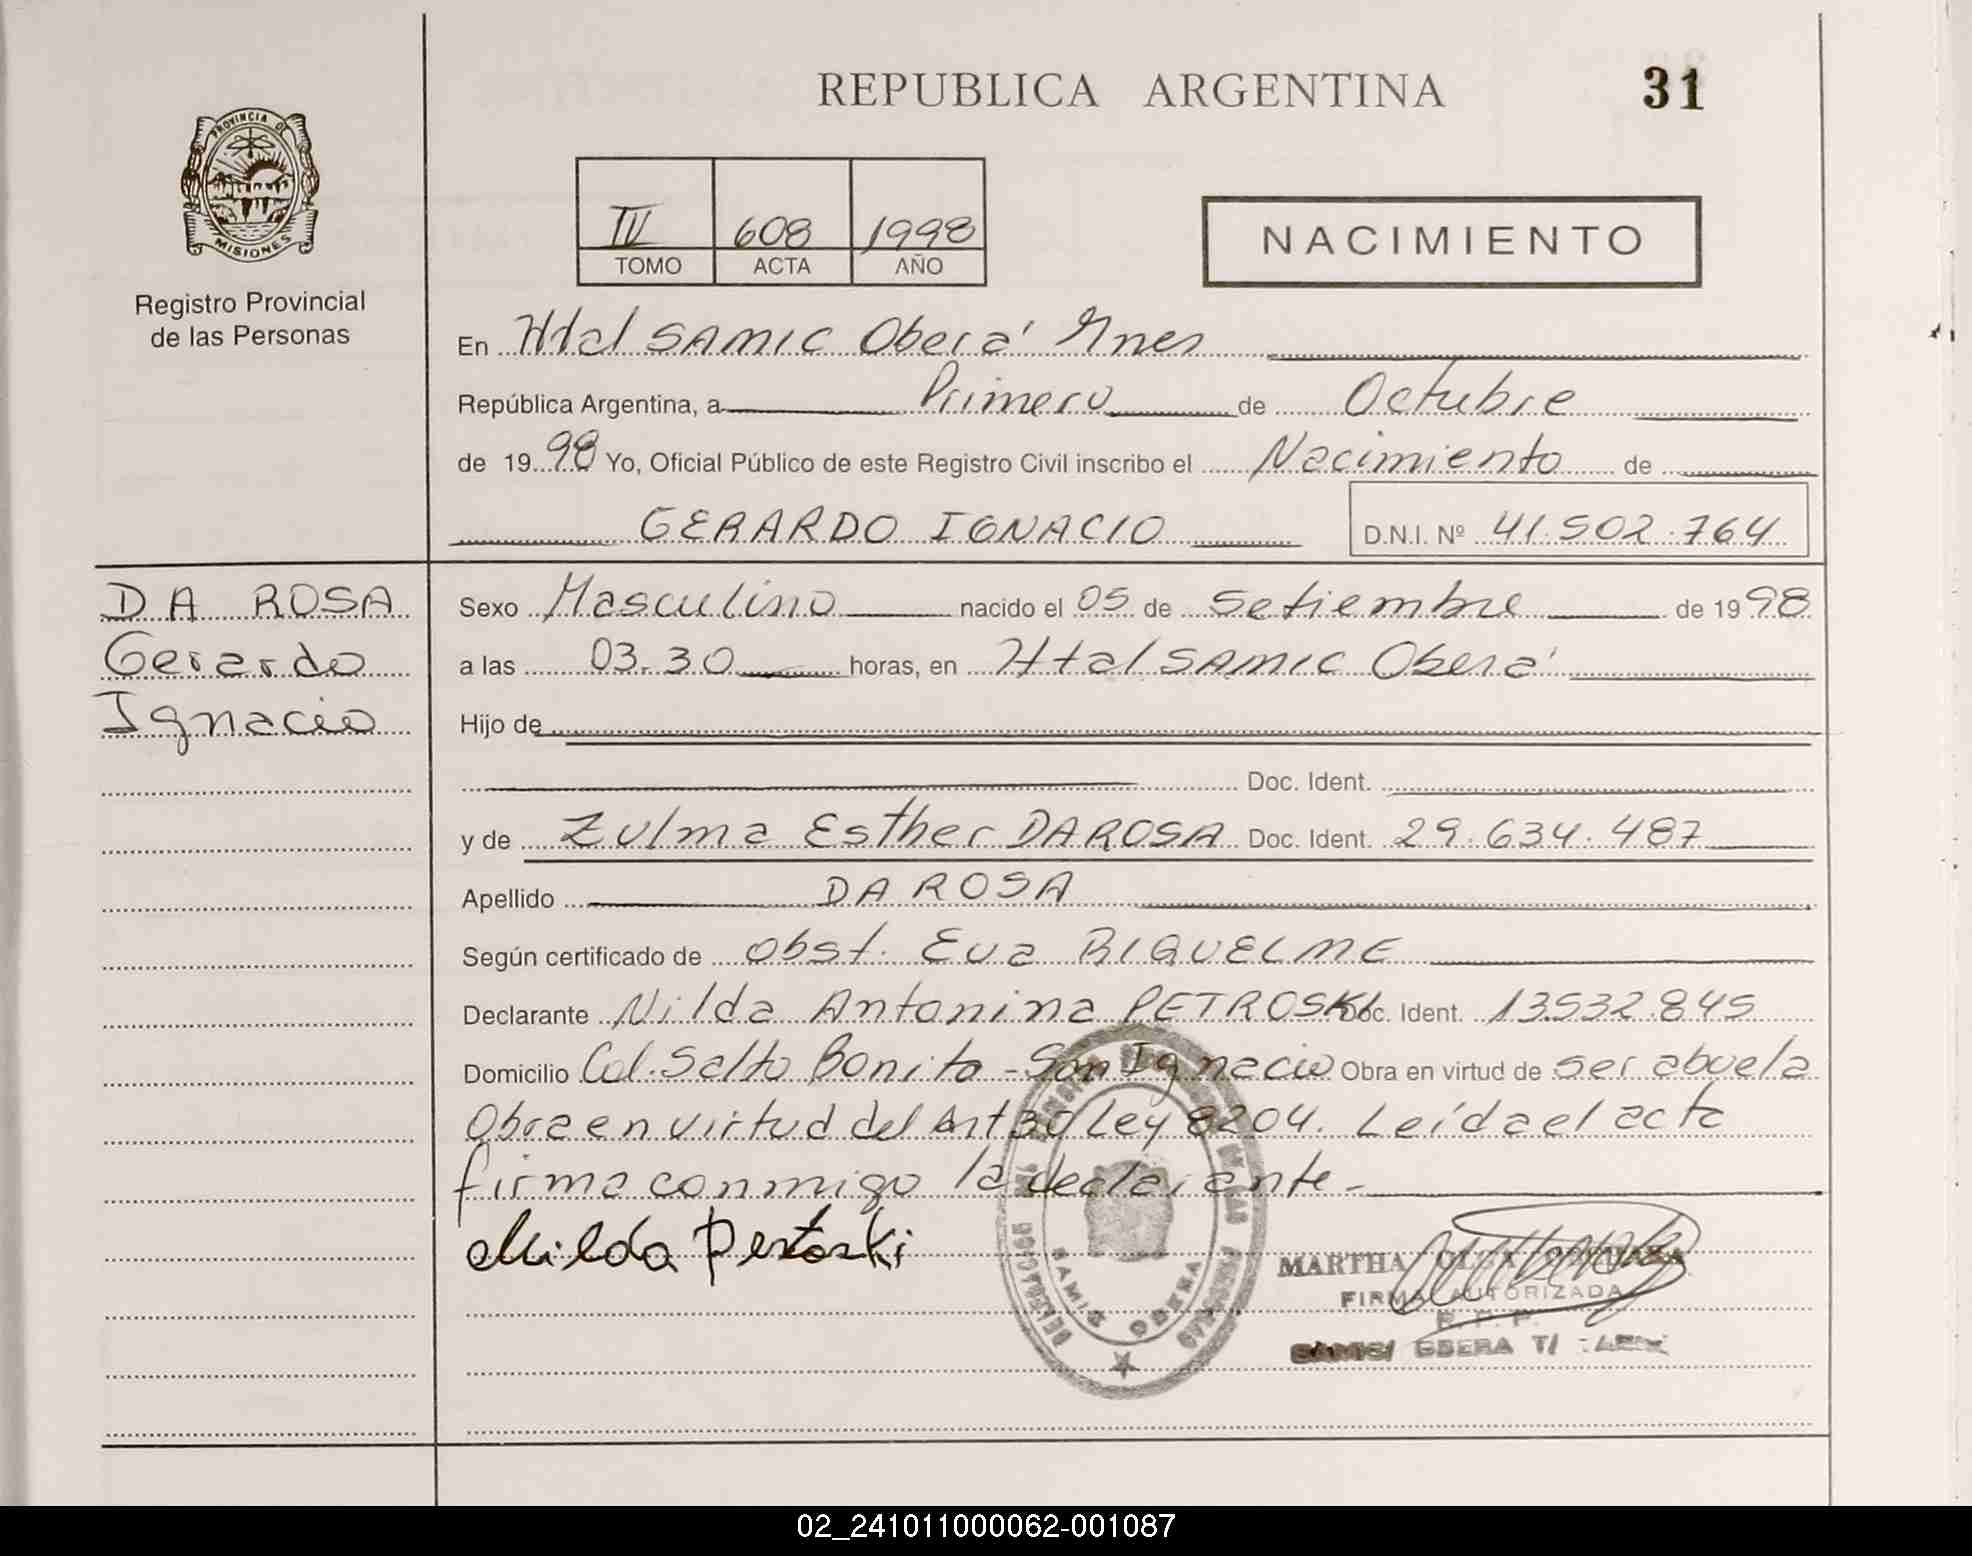 REPUBLICA ARGENTINA
31
PROVINCIA DE
MISIONES
Registro Provincial
de las Personas
IV 608 1998
TOMO ACTA AÑO
NACIMIENTO
En Htal SAMIC Oberá Mnes
República Argentina, a Primero de Octubre
de 1998 Yo, Oficial Público de este Registro Civil inscribo el Nacimiento de
GERARDO IGNACIO D.N.I. Nº 41.502.764
DA ROSA
Gerardo
Ignacio
Sexo Masculino nacido el 05 de Setiembre de 1998
a las 03.30 horas, en Htal SAMIC Oberá
Hijo de
Doc. Ident.
y de Zulma Esther DA ROSA Doc. Ident. 29.634.487
Apellido DA ROSA
Según certificado de obst. Eva RIQUELME
Declarante Nilda Antonina PETROSKI Doc. Ident. 13.532.845
Domicilio Col. Salto Bonito - San Ignacio Obra en virtud de ser abuela
Obra en virtud del Art 30 Ley 8204. Leída el acta
firma conmigo la declarante -
Nilda Petroski
MARTHA OLGA
FIRMA AUTORIZADA
R. P. P.
SAMIC OBERA
SAMIC/ OBERA T/
02_241011000062-001087